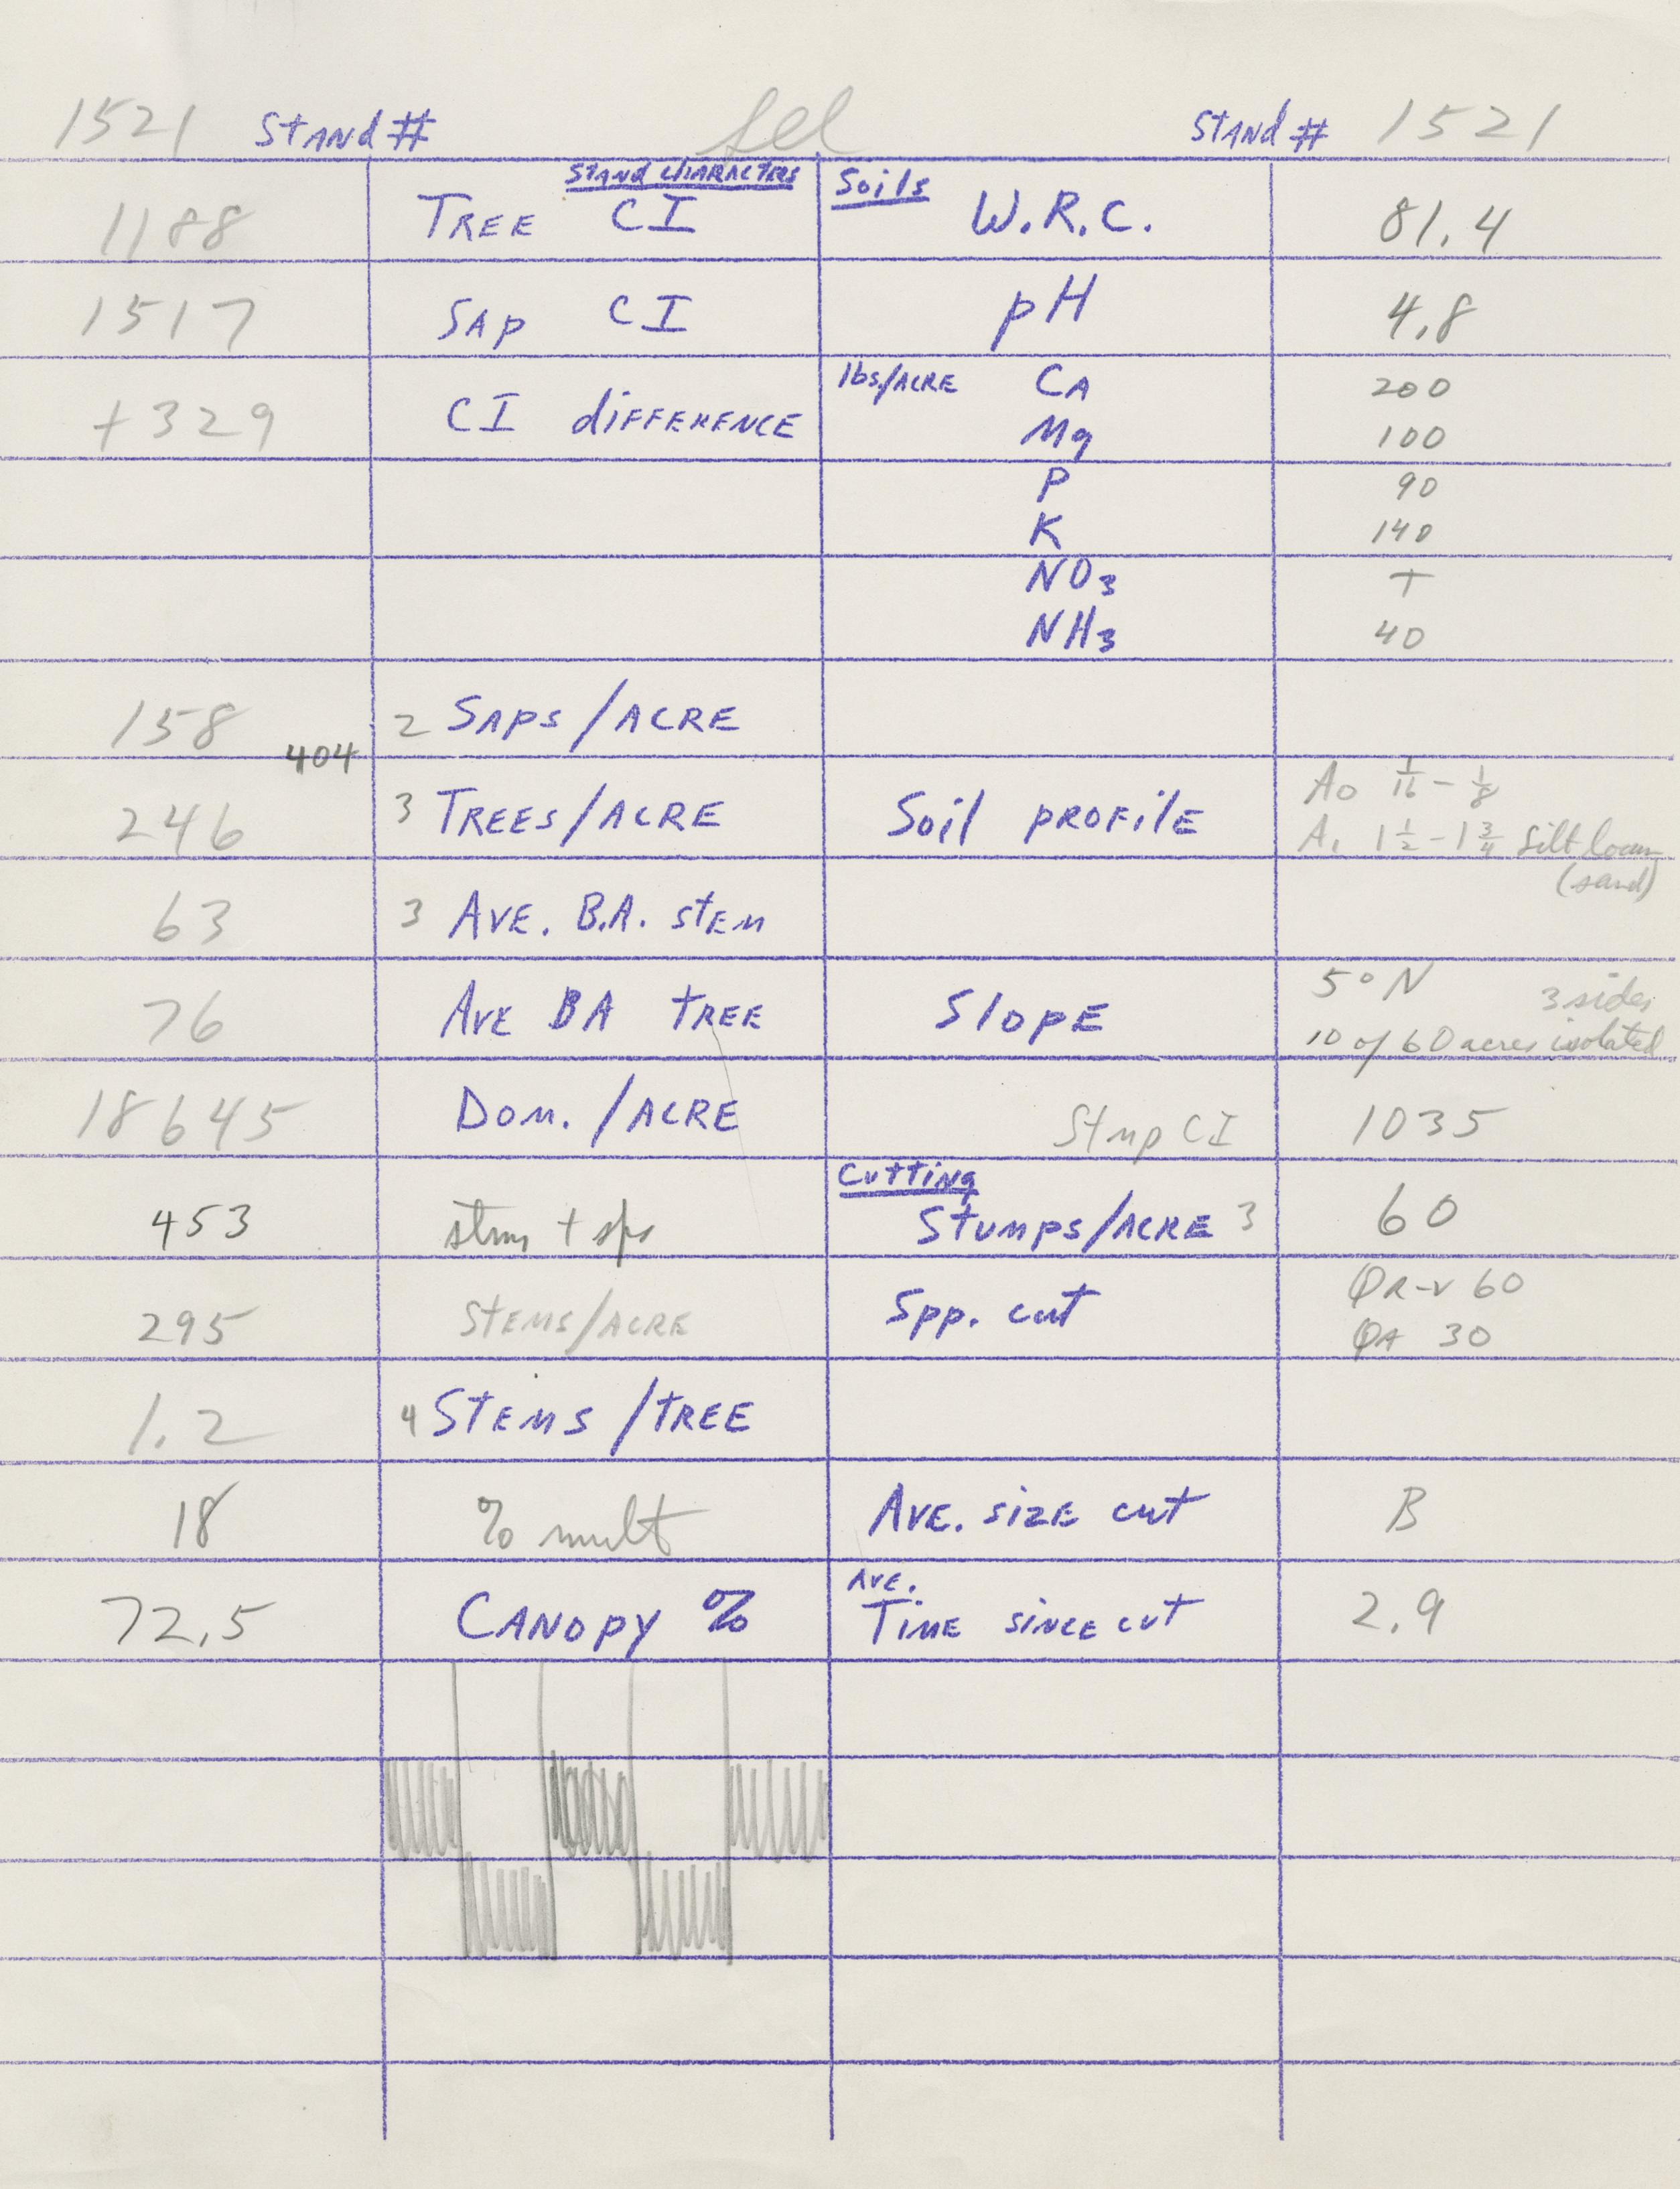 1521 Stand # sel Stand # 1521
Stand characters Soils
1188 Tree CI W.R.C. 81.4
1517 Sap CI pH 4.8
+329 CI difference lbs/acre Ca 200
Mg 100
P 90
K 140
NO3 T
NH3 40
158 2 Saps/acre
404
246 3 Trees/acre Soil profile A0 1/16 - 1/8
A1 1 1/2 - 1 3/4 silt loam
(sand)
63 3 Ave. B.A. stem
76 Ave BA tree Slope 5° N 3 sides
10 of 60 acres isolated
18645 Dom./acre Stmp CI 1035
Cutting
453 stms + sps Stumps/acre 3 60
295 Stems/acre Spp. cut QR-V 60
QA 30
1.2 4 Stems/tree
18 % mult Ave. size cut B
72.5 Canopy % Ave. Time since cut 2.9